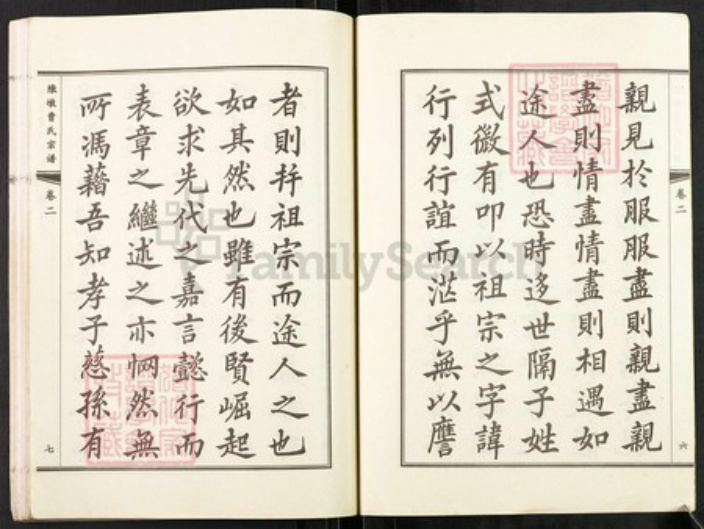 親見於服服盡則親盡親
盡則情盡情盡則相遇如
途人也恐時迻世隔子姓
式微有叩以祖宗之字諱
行列行誼而茫乎無以譍
卷二
六
者則幷祖宗而途人之也
如其然也雖有後賢崛起
欲求先代之嘉言懿行而
表章之繼述之亦惘然無
所馮藉吾知孝子慈孫有
陳墩曹氏宗谱
卷二
七
FamilySearch